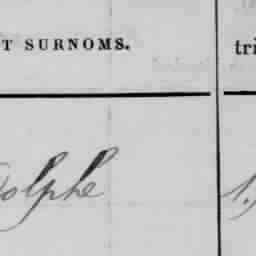 T SURNOMS. tri
dolphe